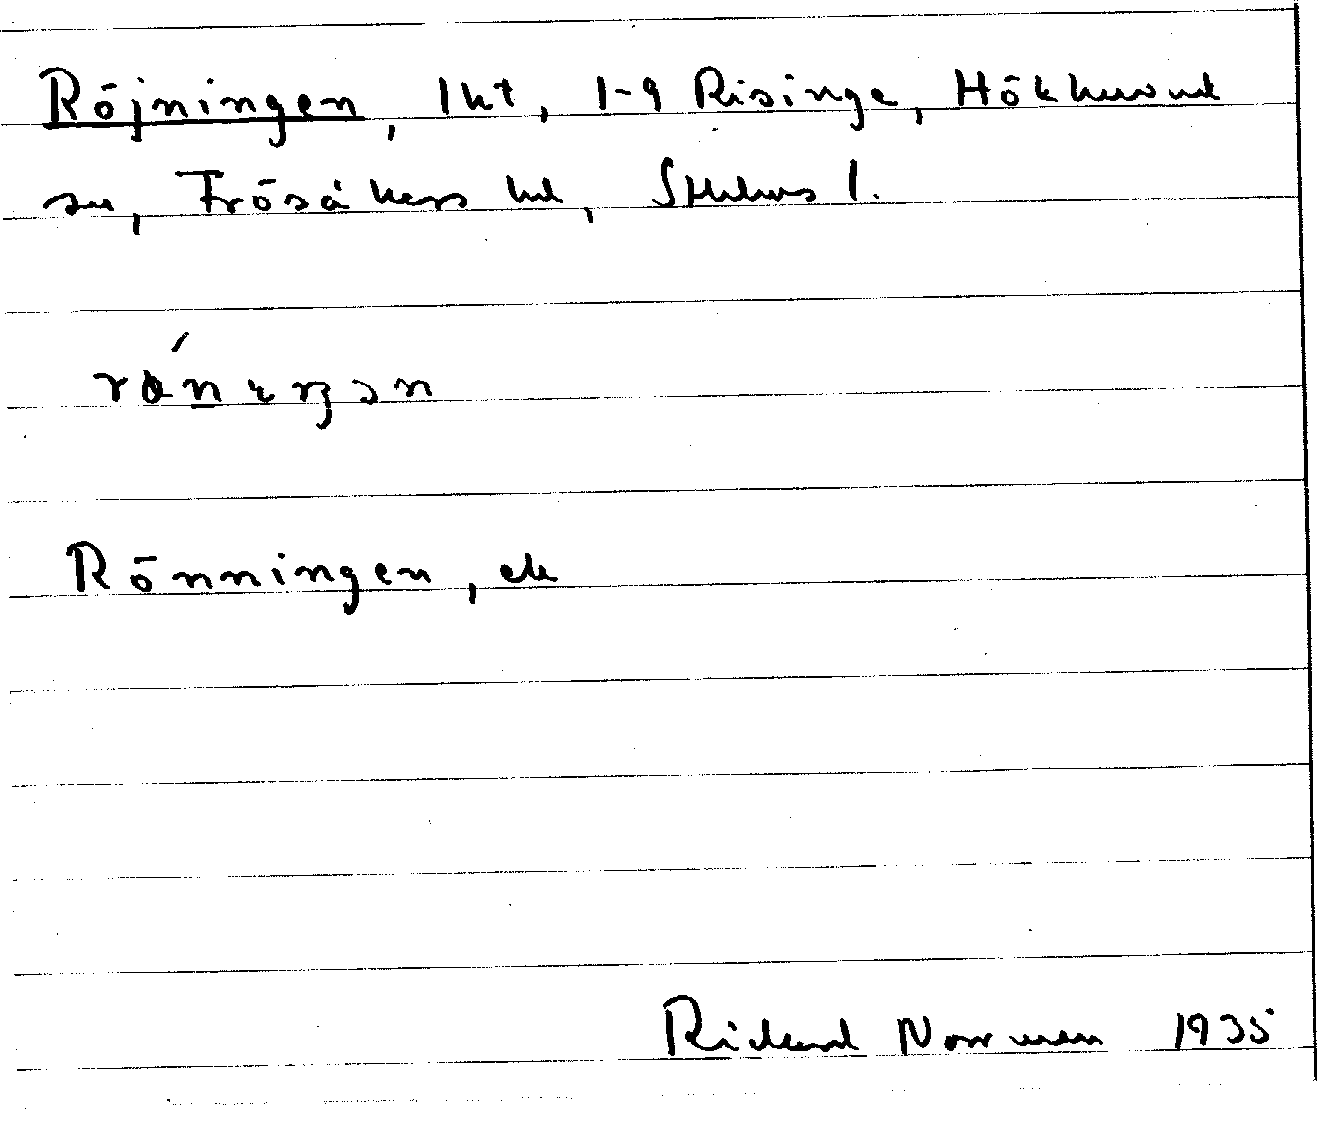 Röjningen, lht, 1-9 Risinge, Hökhuvud
sn, Frösåkers hd, Sthlms l.
Rönningen, ek
Rickard Norrman 1935